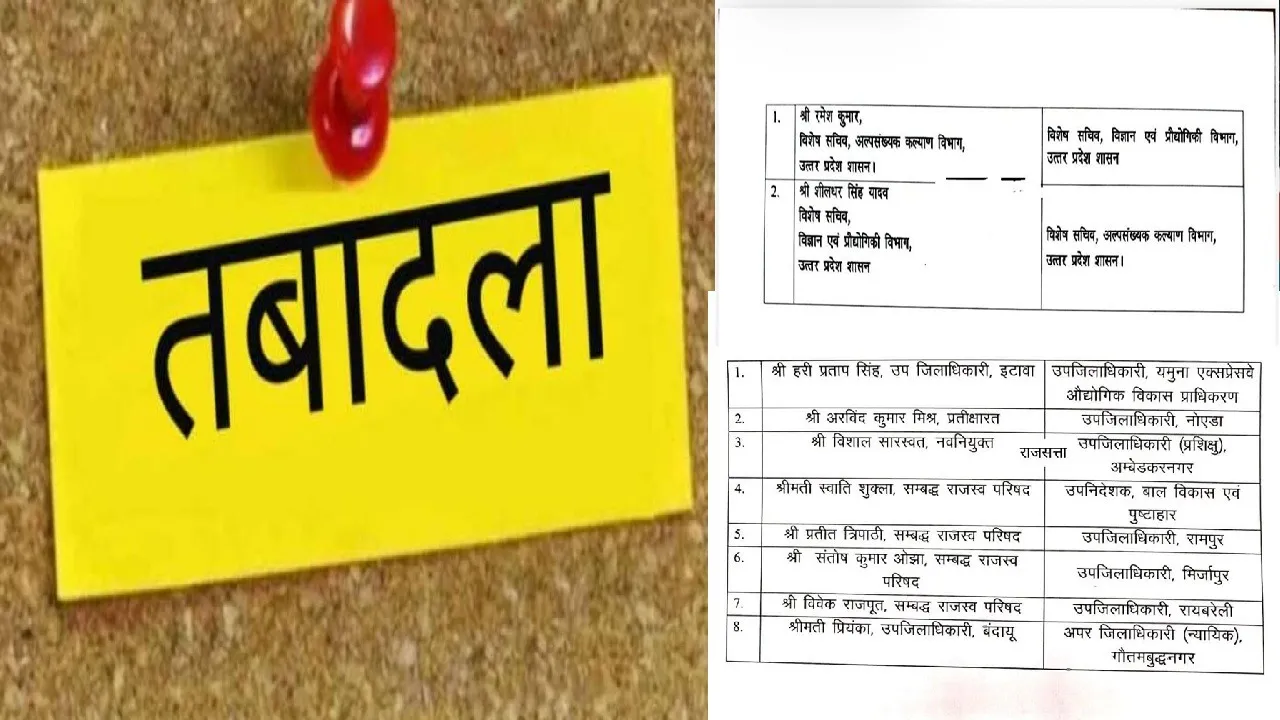 तबादला
1.
श्री रमेश कुमार,
विशेष सचिव, अल्पसंख्यक कल्याण विभाग,
उत्तर प्रदेश शासन।
विशेष सचिव, विज्ञान एवं प्रौद्योगिकी विभाग,
उत्तर प्रदेश शासन
2.
श्री शीलधर सिंह यादव
विशेष सचिव,
विज्ञान एवं प्रौद्योगिकी विभाग,
उत्तर प्रदेश शासन
विशेष सचिव, अल्पसंख्यक कल्याण विभाग,
उत्तर प्रदेश शासन।
1.
श्री हरी प्रताप सिंह, उप जिलाधिकारी, इटावा
उपजिलाधिकारी, यमुना एक्सप्रेसवे
औद्योगिक विकास प्राधिकरण
2.
श्री अरविंद कुमार मिश्र, प्रतीक्षारत
उपजिलाधिकारी, नोएडा
3.
श्री विशाल सारस्वत, नवनियुक्त
राजसत्ता
उपजिलाधिकारी (प्रशिक्षु),
अम्बेडकरनगर
4.
श्रीमती स्वाति शुक्ला, सम्बद्ध राजस्व परिषद
उपनिदेशक, बाल विकास एवं
पुष्टाहार
5.
श्री प्रतीत त्रिपाठी, सम्बद्ध राजस्व परिषद
उपजिलाधिकारी, रामपुर
6.
श्री संतोष कुमार ओझा, सम्बद्ध राजस्व
परिषद
उपजिलाधिकारी, मिर्जापुर
7.
श्री विवेक राजपूत, सम्बद्ध राजस्व परिषद
उपजिलाधिकारी, रायबरेली
8.
श्रीमती प्रियंका, उपजिलाधिकारी, बंदायू
अपर जिलाधिकारी (न्यायिक),
गौतमबुद्धनगर